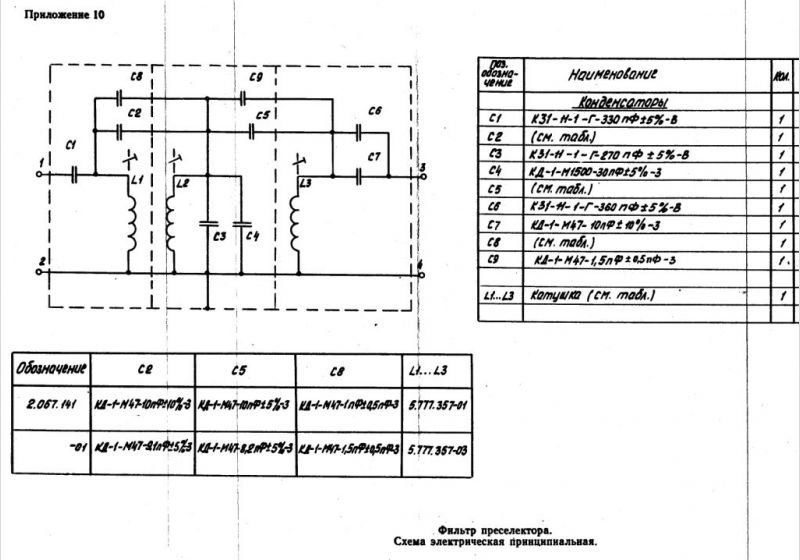 Приложение 10
C8
C9
C2
C5
C6
C1
C7
1
3
L1
L2
L3
C3
C4
2
4
Поз. обозна-чение Наименование Кол.
Конденсаторы
C1 К31-Н-1-Г-330пФ±5%-В 1
C2 (см. табл.) 1
C3 К31-Н-1-Г-270пФ±5%-В 1
C4 КД-1-М1500-30пФ±5%-3 1
C5 (см. табл.) 1
C6 К31-Н-1-Г-360пФ±5%-В 1
C7 КД-1-М47-10пФ±10%-3 1
C8 (см. табл.) 1
C9 КД-1-М47-1,5пФ±0,5пФ-3 1
L1...L3 Катушка (см. табл.) 1
Обозначение C2 C5 C8 L1...L3
2.067.141 КД-1-М47-10пФ±10%-3 КД-1-М47-10пФ±5%-3 КД-1-М47-1пФ±0,5пФ-3 5.777.357-01
-01 КД-1-М47-9,1пФ±5%-3 КД-1-М47-8,2пФ±5%-3 КД-1-М47-1,5пФ±0,5пФ-3 5.777.357-03
Фильтр преселектора.
Схема электрическая принципиальная.